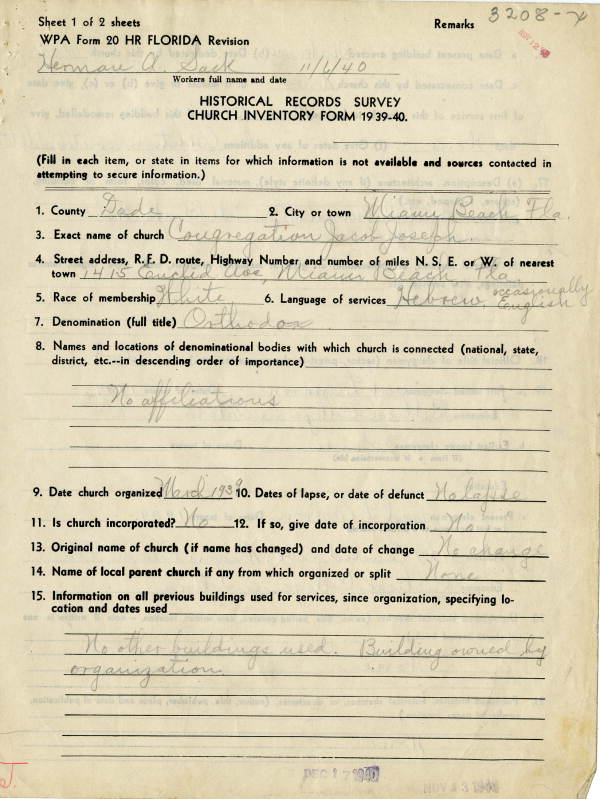 Sheet 1 of 2 sheets
Remarks 3208-4
WPA Form 20 HR FLORIDA Revision
Herman A. Sack 11/6/40
Workers full name and date
HISTORICAL RECORDS SURVEY
CHURCH INVENTORY FORM 1939-40.
(Fill in each item, or state in items for which information is not available and sources contacted in
attempting to secure information.)
1. County Dade 2. City or town Miami Beach Fla.
3. Exact name of church Congregation Jacob Joseph
4. Street address, R. F. D. route, Highway Number and number of miles N. S. E. or W. of nearest
town 1415 Euclid Ave, Miami Beach Fla
5. Race of membership White 6. Language of services Hebrew, occasionally English
7. Denomination (full title) Orthodox
8. Names and locations of denominational bodies with which church is connected (national, state,
district, etc.--in descending order of importance)
No affiliations
9. Date church organized March 1939 10. Dates of lapse, or date of defunct No lapse
11. Is church incorporated? No 12. If so, give date of incorporation No
13. Original name of church (if name has changed) and date of change No change
14. Name of local parent church if any from which organized or split None
15. Information on all previous buildings used for services, since organization, specifying lo-
cation and dates used
No other buildings used. Building owned by
organization
DEC 17 1940
NOV 13 1940